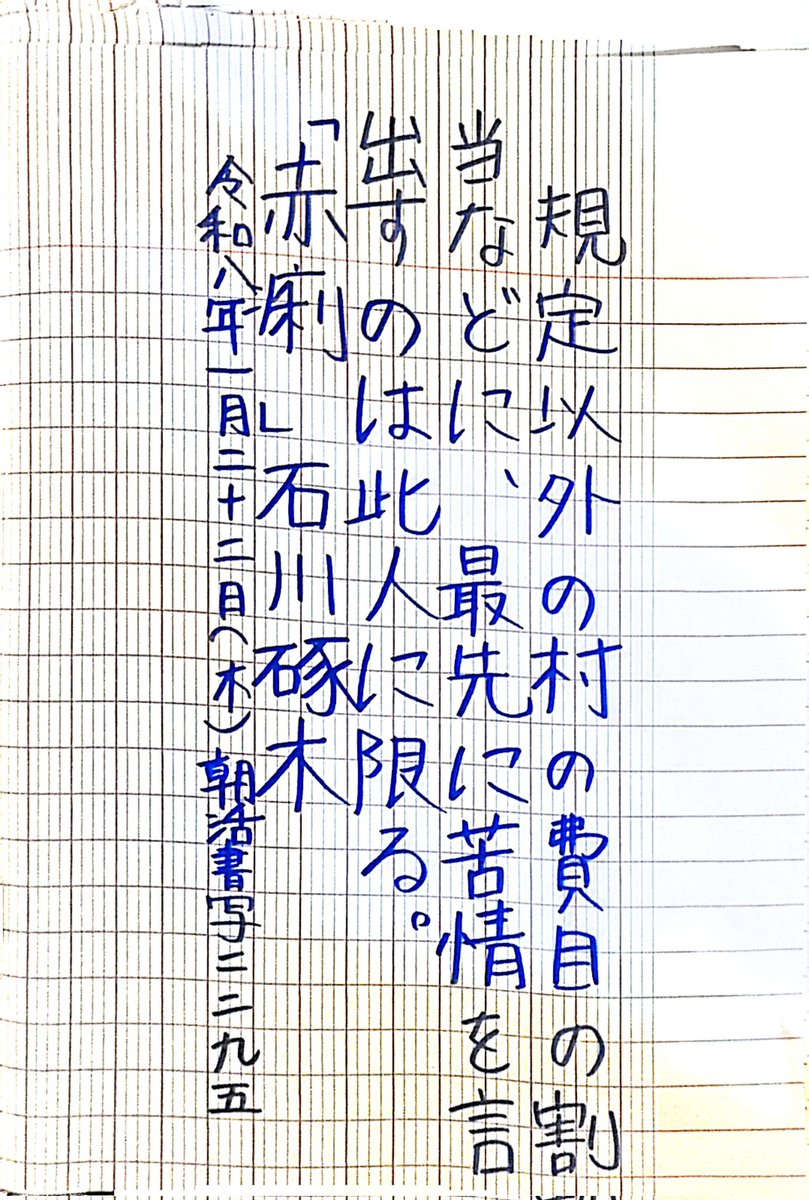 規定以外の村の費目の割
当などに、最先に苦情を言
出すのは此人に限る。
「赤痢」石川啄木
令和八年一月二十二日(木)朝活書写二二九五